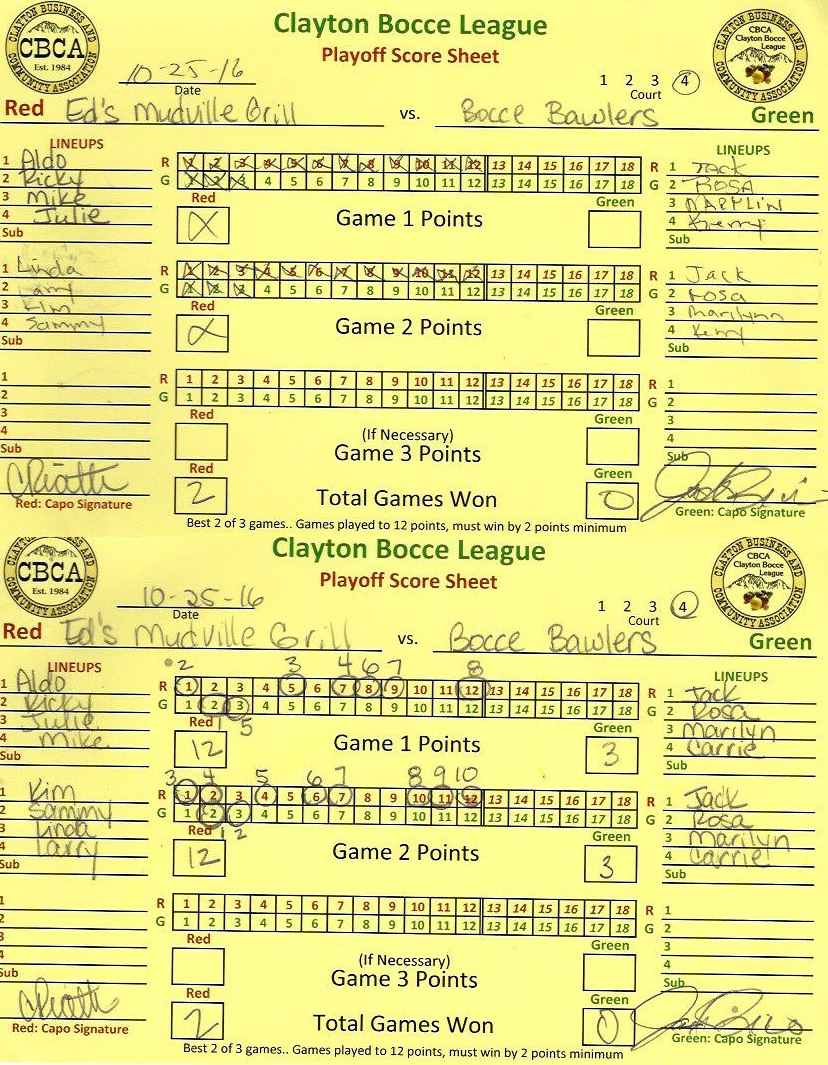 Clayton Bocce League
Playoff Score Sheet
CLAYTON BUSINESS AND COMMUNITY ASSOCIATION
CBCA
Est. 1984
CLAYTON BUSINESS AND COMMUNITY ASSOCIATION
CBCA
Clayton Bocce
League
10-25-16
Date
1 2 3 4
Court
Red Ed's Mudville Grill vs. Bocce Bawlers Green
LINEUPS
1 Aldo
2 Ricky
3 Mike
4 Julie
Sub
R 1 2 3 4 5 6 7 8 9 10 11 12 13 14 15 16 17 18 R
G 1 2 3 4 5 6 7 8 9 10 11 12 13 14 15 16 17 18 G
Red
Green
Game 1 Points
LINEUPS
1 Jack
2 ROSA
3
4 Kerry
Sub
1 Linda
2 Larry
3 Kim
4 Sammy
Sub
R 1 2 3 4 5 6 7 8 9 10 11 12 13 14 15 16 17 18 R
G 1 2 3 4 5 6 7 8 9 10 11 12 13 14 15 16 17 18 G
Red
Green
Game 2 Points
1 Jack
2 rosa
3 marilynn
4 Kerry
Sub
1
2
3
4
Sub
R 1 2 3 4 5 6 7 8 9 10 11 12 13 14 15 16 17 18 R
G 1 2 3 4 5 6 7 8 9 10 11 12 13 14 15 16 17 18 G
Red
Green
(If Necessary)
Game 3 Points
1
2
3
4
Sub
Red
2
Total Games Won
Green
0
Red: Capo Signature
Green: Capo Signature
Best 2 of 3 games.. Games played to 12 points, must win by 2 points minimum
Clayton Bocce League
Playoff Score Sheet
CLAYTON BUSINESS AND COMMUNITY ASSOCIATION
CBCA
Est. 1984
CLAYTON BUSINESS AND COMMUNITY ASSOCIATION
CBCA
Clayton Bocce
League
10-25-16
Date
1 2 3 4
Court
Red Ed's Mudville Grill vs. Bocce Bawlers Green
LINEUPS
1 Aldo
2 Ricky
3 Julie
4 Mike
Sub
2 3 4 6 7 8
R 1 2 3 4 5 6 7 8 9 10 11 12 13 14 15 16 17 18 R
G 1 2 3 4 5 6 7 8 9 10 11 12 13 14 15 16 17 18 G
1 5
Red
12
Game 1 Points
Green
3
LINEUPS
1 Jack
2 Rosa
3 Marilyn
4 Carrie
Sub
1 Kim
2 Sammy
3 Linda
4 Larry
Sub
3 4 5 6 7 8 9 10
R 1 2 3 4 5 6 7 8 9 10 11 12 13 14 15 16 17 18 R
G 1 2 3 4 5 6 7 8 9 10 11 12 13 14 15 16 17 18 G
1 2
Red
12
Game 2 Points
Green
3
1 Jack
2 Rosa
3 Marilyn
4 Carrie
Sub
1
2
3
4
Sub
R 1 2 3 4 5 6 7 8 9 10 11 12 13 14 15 16 17 18 R
G 1 2 3 4 5 6 7 8 9 10 11 12 13 14 15 16 17 18 G
Red
Green
(If Necessary)
Game 3 Points
1
2
3
4
Sub
Red
2
Total Games Won
Green
0
Red: Capo Signature
Green: Capo Signature
Best 2 of 3 games.. Games played to 12 points, must win by 2 points minimum